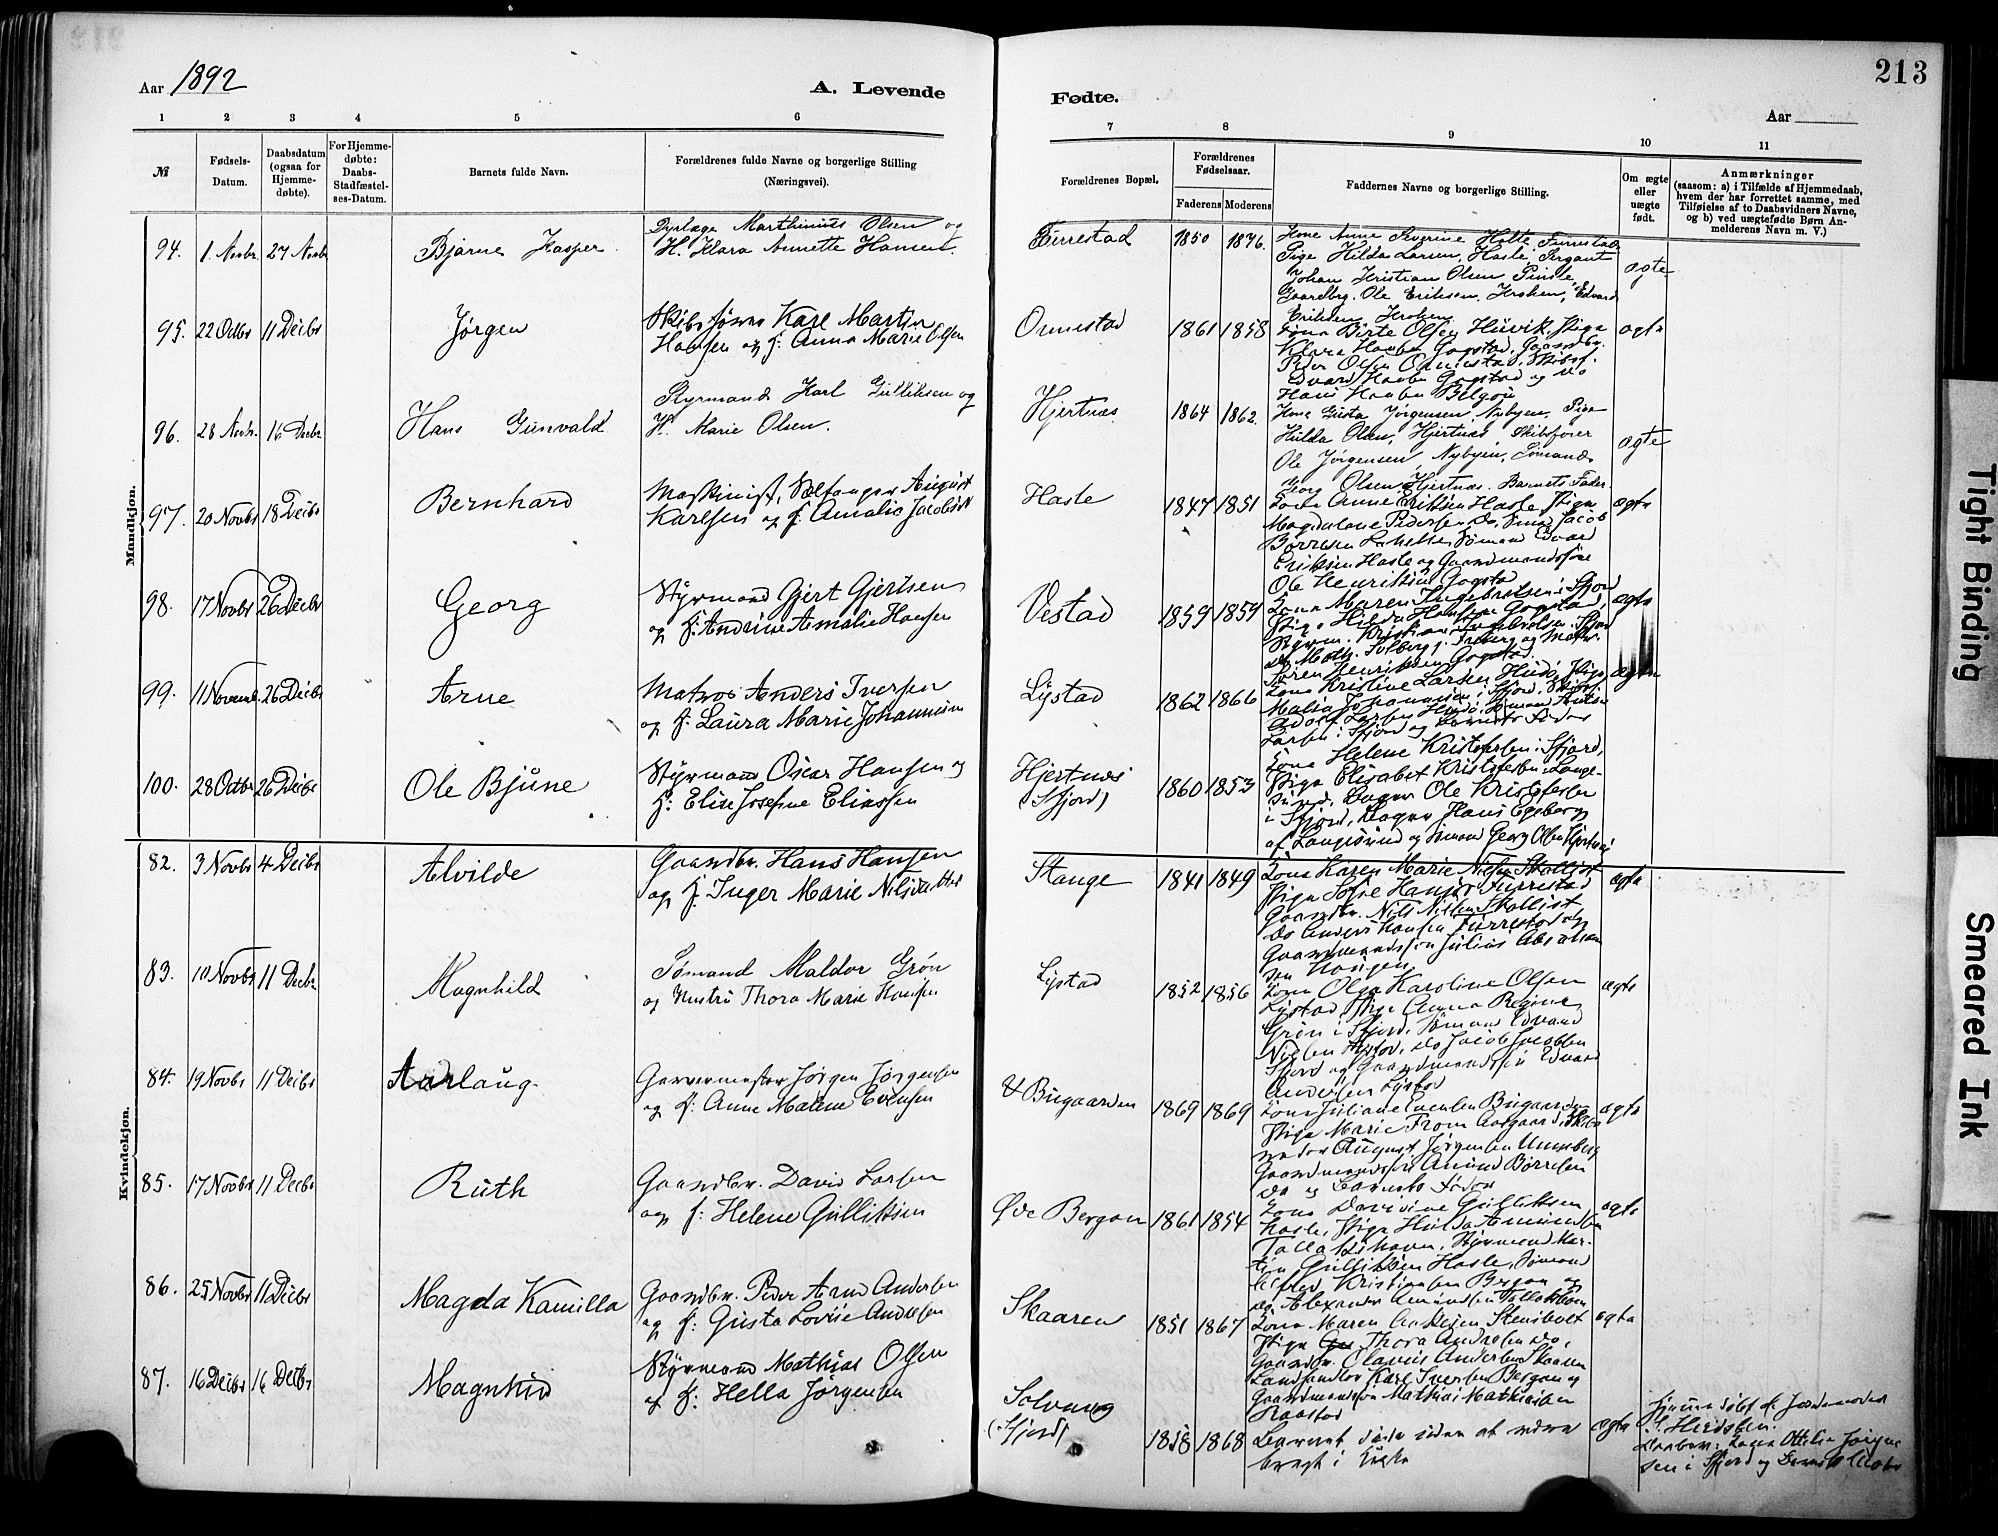 213
Aar 1892
A. Levende
Fødte.
Aar
1 2 3 4 5 6 7 8 9 10 11
№
Fødsels-
Datum.
Daabsdatum
(ogsaa for
Hjemme-
døbte).
For Hjemme-
døbte:
Daabs-
Stadfæstel-
ses-Datum.
Barnets fulde Navn.
Forældrenes fulde Navne og borgerlige Stilling
(Næringsvei).
Forældrenes Bopæl.
Forældrenes
Fødselsaar.
Faderens Moderens
Faddernes Navne og borgerlige Stilling.
Om ægte
eller
uægte
født.
Anmærkninger
(saasom: a) i Tilfælde af Hjemmedaab,
hvem der har forrettet samme, med
Tilføielse af to Daabsvidners Navne,
og b) ved uægtefødte Børn An-
melderens Navn m. V.)
Mandkjøn.
94. 1. Novbr. 27 Novbr Bjarne Kasper
Dyrlæge Marthinius Olsen og
H. Klara Annette Hansen.
1850
Kone Anne Severine Holte, Furrestad
Pige Hilda Larsen, Hasle, Sergant
Johan Kristian Olsen
Gaardbrg. Ole Eriksen, Kroken, Edvard
Eriksen Kroken
ægte
95. 22 Octbr 11 Decbr Jørgen
Skibsfører Karl Martin
Hansen og H: Anna Marie Olsen
Ormestad 1861 1858
Kona Birte Olsen Huvik, Pige
Klara Haabu Gogstad, Gaardbr.
Peder Olsen Ormestad, Skibsf.
Edvard Haabu Gogstad og do
Hans Haabu
ægte
96. 28 Novbr. 16 Decbr Hans Gunvald
Styrmand Karl Gulliksen og
H. Marie Olsen.
Hjertnæs 1864 1862.
Kone Gusta Jørgensen, Nybyen, Pige
Hilda Olsen, Hjertnæs, Skibsfører
Ole Jørgensen, Nybyen, Sømand
Georg Olsen Hjertnæs. Barnets Fader.
ægte
97. 20 Novbr 18 Decbr Bernhard
Maskinist, Sælfanger August
Karlsen og H: Amalie Jacobsdt
Hasle 1847 1851
Kona Anne Eriksen Hasle, Pige
Magdalene Pedersen do, Sømd Jacob
Børresen, Sømand Edvard
Eriksen Hasle og Gaardmandssøn
Ole Henriksen Gogsta
ægte
98. 17 Novbr 26 Decbr Georg
Styrmand Gjert Gjertsen
og H: Andrine Amalie Hansen
Vestad 1859 1859
Kona Maren Ingebretsen i Sfjord
Pige Hilda Hansen Gogstad,
Styrm. Kristian Ingebretsen i Sfjord
do Math. Solberg og Matr.
Søren Henriksen Gogstad.
ægte
99. 11 Novembr 26 Decbr Arne
Matros Anders Iversen
og H: Laura Marie Johannesen
Lystad 1862 1866
Kona Kristine Larsen Huidø, Pige
Malia Johannesen i Sfjord, Skibsf.
Adolf Larsen Huidø, Sømand
Larsen i Sfjord og Barnets Fader
ægte
100. 28 Octbr 26 Decbr Ole Bjune
Styrmand Oscar Hansen og
H: Elise Josefine Eliassen
Hjertnæs
(Sfjord)
1860 1853
Kona Helene Kristofersen i Sfjord,
Pige Elisabet Kristofersen i Lange-
sund, Bager Ole Kristofersen
i Sfjord, Bager Hans Egeberg
af Langesund og Sømand Georg Olsen Hjertnæs
Kvindekjøn.
82. 3 Novbr 4 Decbr Alvilde
Gaardbr. Hans Hansen
og H: Inger Marie Nilsdatter
Stange 1841 1849
Kona Karen Marie Nielsen Skollist
Pige Sofie Hansen Furrestad
Gaardbr. Nils Nielsen Skollist
do Anders Hansen Furrestad og
Gaardmandssøn Julius Abraham-
sen Haugen.
ægte
83. 10 Novbr 11 Decbr Magnhild
Sømand Maldor Grøn
og Hustru Thora Marie Hansen
Lystad 1852 1856
Kona Olga Karoline Olsen
Lystad, Pige Anna Regine
Grøn i Sfjord, Sømand Edvard
Nielsen, do Jacob Jacobsen
Sfjord og Gaardmandssøn Edvard
Andersen Lystad
ægte
84. 19 Novbr 11 Decbr Aarlaug.
Garvermester Jørgen Jørgensen
og H: Anne Malene Evensen
V Bugaarden 1869 1869
Kona Juliane Evensen Bugaarden
Pige Marie From Aasgaard, Skibs-
reder August Jørgensen Unneberg
Gaardmandssøn Amund Børresen
do og Barnets Fader
ægte
85. 17 Novbr 11 Decbr Ruth
Gaardbr. David Larsen
og H: Helene Gulliksen
Øde Bergan 1861 1854
Kona Davidine Gulliksen
Hasle, Pige Hulda Amundsen
Tallakshavn, Styrmand Mar-
tin Gulliksen Hasle, Sømand
Kristiansen Bergan og
do Alexander Amundsen Tallakshavn
ægte
86. 25 Novbr 11 Decbr Magda Kamilla
Gaardbr. Peder Arnd Andersen
og H: Gusta Lovise Andersen
Skaaren 1851 1867
Kona Maren Andersen Stensholt
Pige Thora Andersen do,
Gaardbr. Olavus Andersen Skaaren
Landhandler Karl Iversen Bergan og
Gaardmandssøn Mathias Mathisen
Raastad
ægte
87. 16 Decbr 16 Decbr Magnhild
Styrmand Mathias Olsen
og H: Hella Jørgensen
Solvang
(Sfjord)
1858 1868
Barnet døde uden at være
bragt i Kirke
ægte
Hjemmedøbt af Jordemoder
Daabsv: Kona Ottilie Jørgen-
sen i Sfjord og Barnets Moder
Tight Binding
Smeared Ink